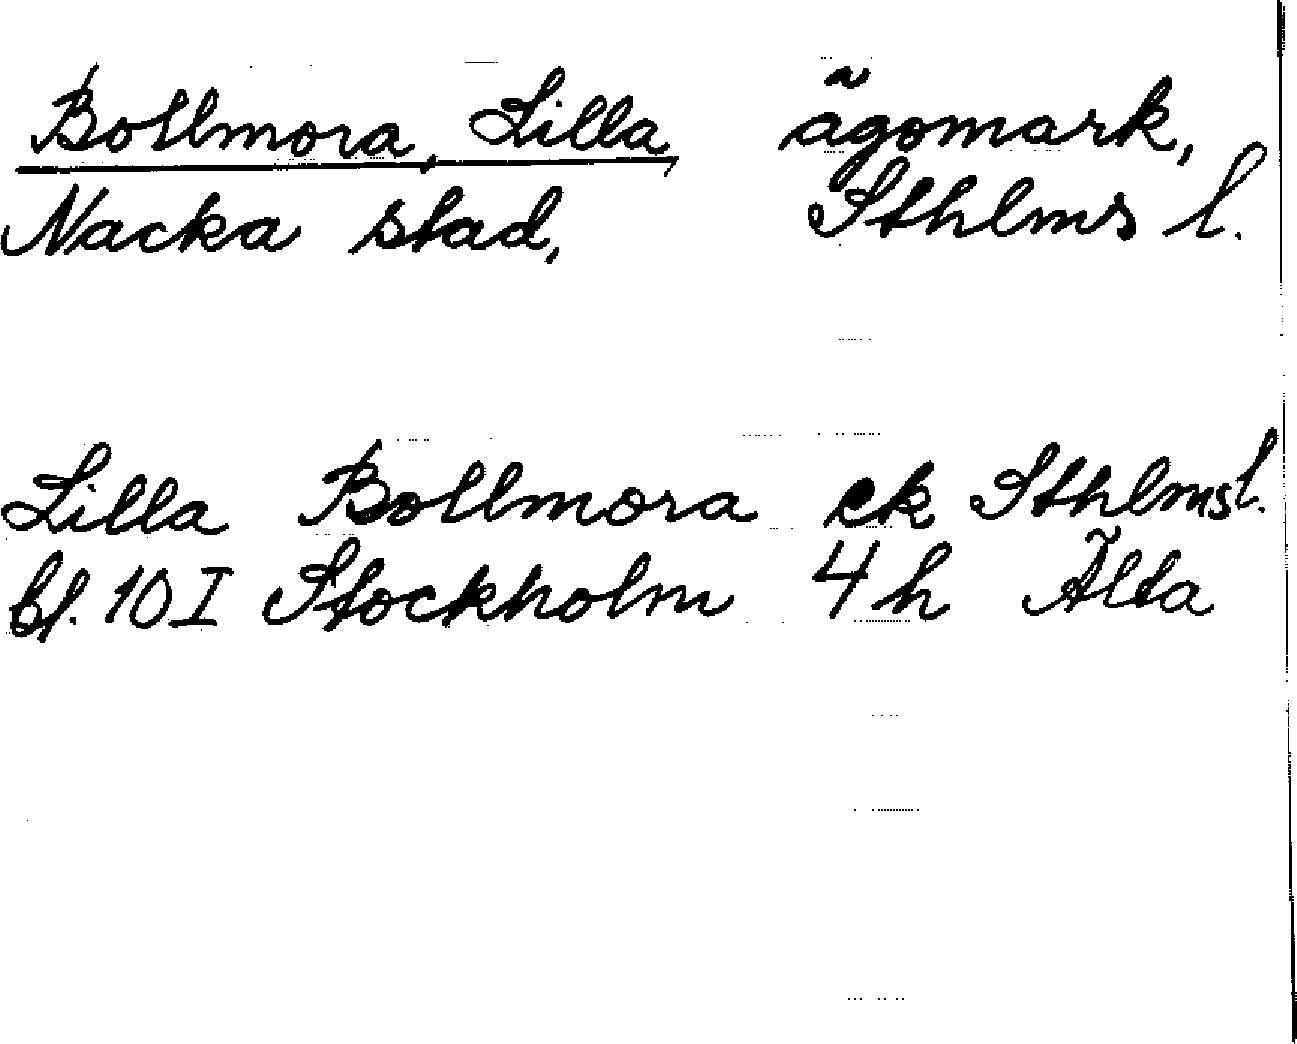 Bollmora, Lilla, ägomark,
Nacka stad, Sthlms l.
Lilla Bollmora ek Sthlms l.
bl. 10 I Stockholm 4 h Älta